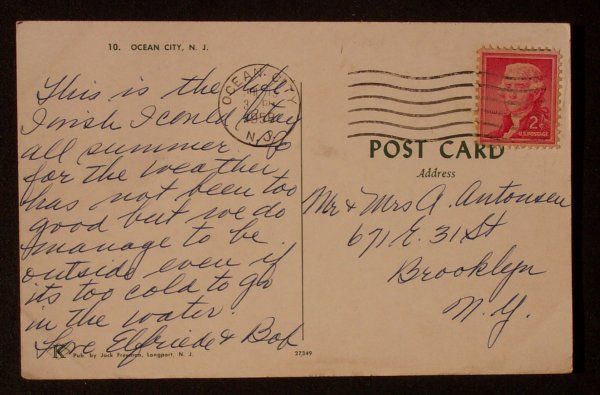 10. OCEAN CITY, N. J.
This is the life
I wish I could stay
all summer. So
far the weather
has not been too
good but we do
manage to be
outside even if
its too cold to go
in the water.
Love Elfriede & Bob
K Pub. by Jack Freeman, Longport, N. J.
27349
OCEAN CITY
N.J.
2¢
U.S. POSTAGE
POST CARD
Address
Mr & Mrs A. Antonsen
671 E. 31 St
Brooklyn
N. Y.